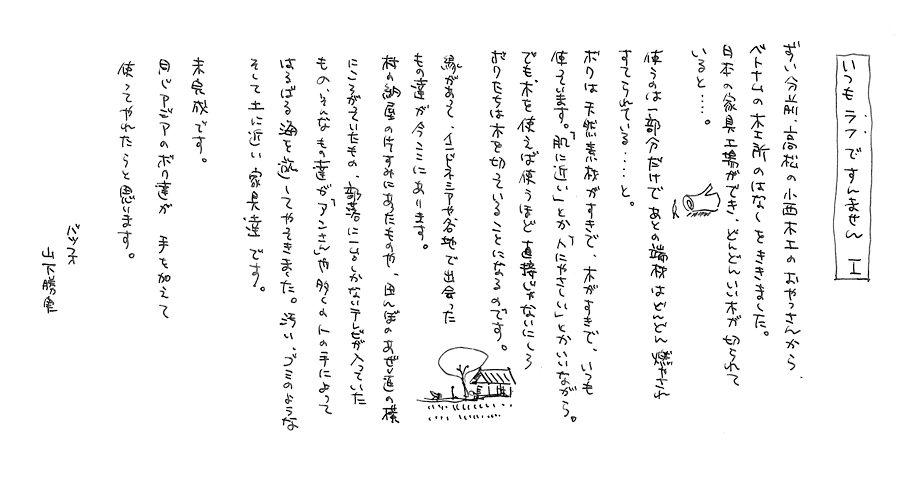 いつもラフですんません I
ずい分前、高松の小西木工のおやっさんから、
ベトナムの木工所のはなしをききました。
日本の家具工場ができ、どんどんいい木が切られて
いると……。
使うのは一部分だけであとの端材はどんどん燃やされ
すてられている……と。
ボクは天然素材がすきで、木がすきで、いつも
使っています。「肌に近い」とか「人にやさしい」とかいいながら。
でも、木を使えば使うほど直接じゃないにしろ
ボクたちは木を切っていることになるのです。
縁があって、インドネシアや各地で出会った
もの達が今ここにあります。
村の納屋の片すみにあったものや、田んぼのあぜ道の横
にころがっていたもの、部落に一つしかないテレビが入っていた
もの、そんなもの達が「アンさん」や多くの人の手によって
はるばる海を越してやってきました。汚い、ゴミのような
そして土に近い家具達です。
未完成です。
同じアジアのボク達が手を加えて
使ってやれたらと思います。
バッファ
山下勝実